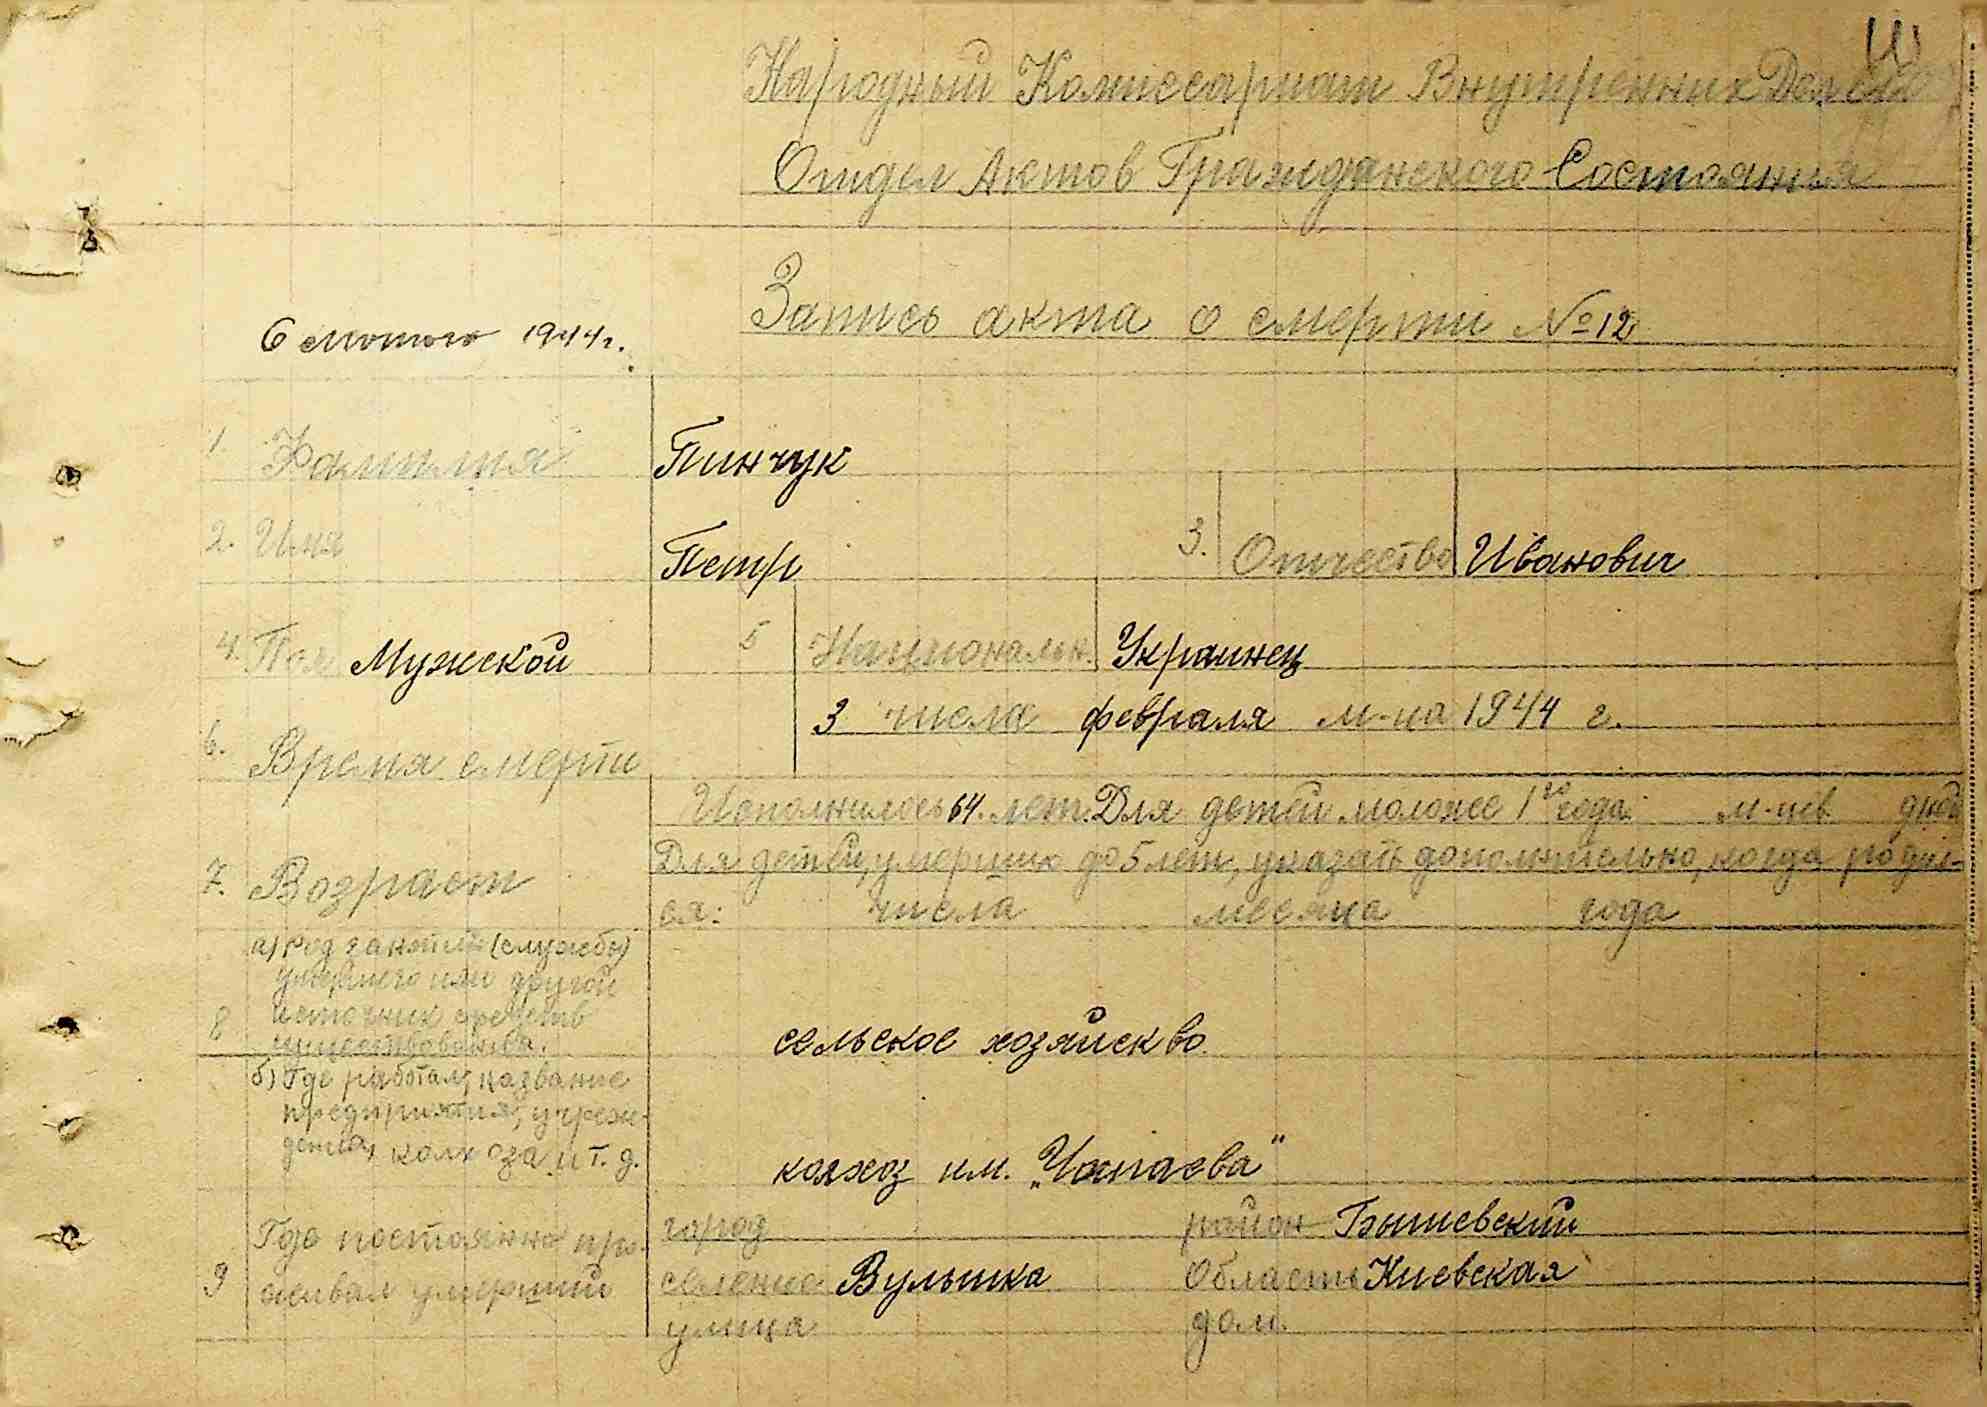 Народный Комиссариат Внутренних Дел
Отдел Актов Гражданского Состояния
6 лютого 1944 г.
Запись акта о смерти №12
1. Фамилия Пинчук
2. Имя Петр 3. Отчество Иванович
4. Пол Мужской 5 Национальн. Украинец
6. Время смерти 3 числа февраля м-ца 1944 г.
Исполнилось 64 лет. Для детей моложе 1го года м-цев дней
7. Возраст Для детей, умерших до 5 лет, указать дополнительно, когда родил-
ся: числа месяца года
8 а) Род занятий (службы)
умершего или другой
источник средств
существования.
сельское хозяйскво
б) Где работал, название
предприятия, учреж-
дения, колхоза и т. д.
колхоз им. „Чапаева"
9 Где постоянно про-
живал умерший
город район Бышевский
селение Вулышка Область Киевская
улица дом.